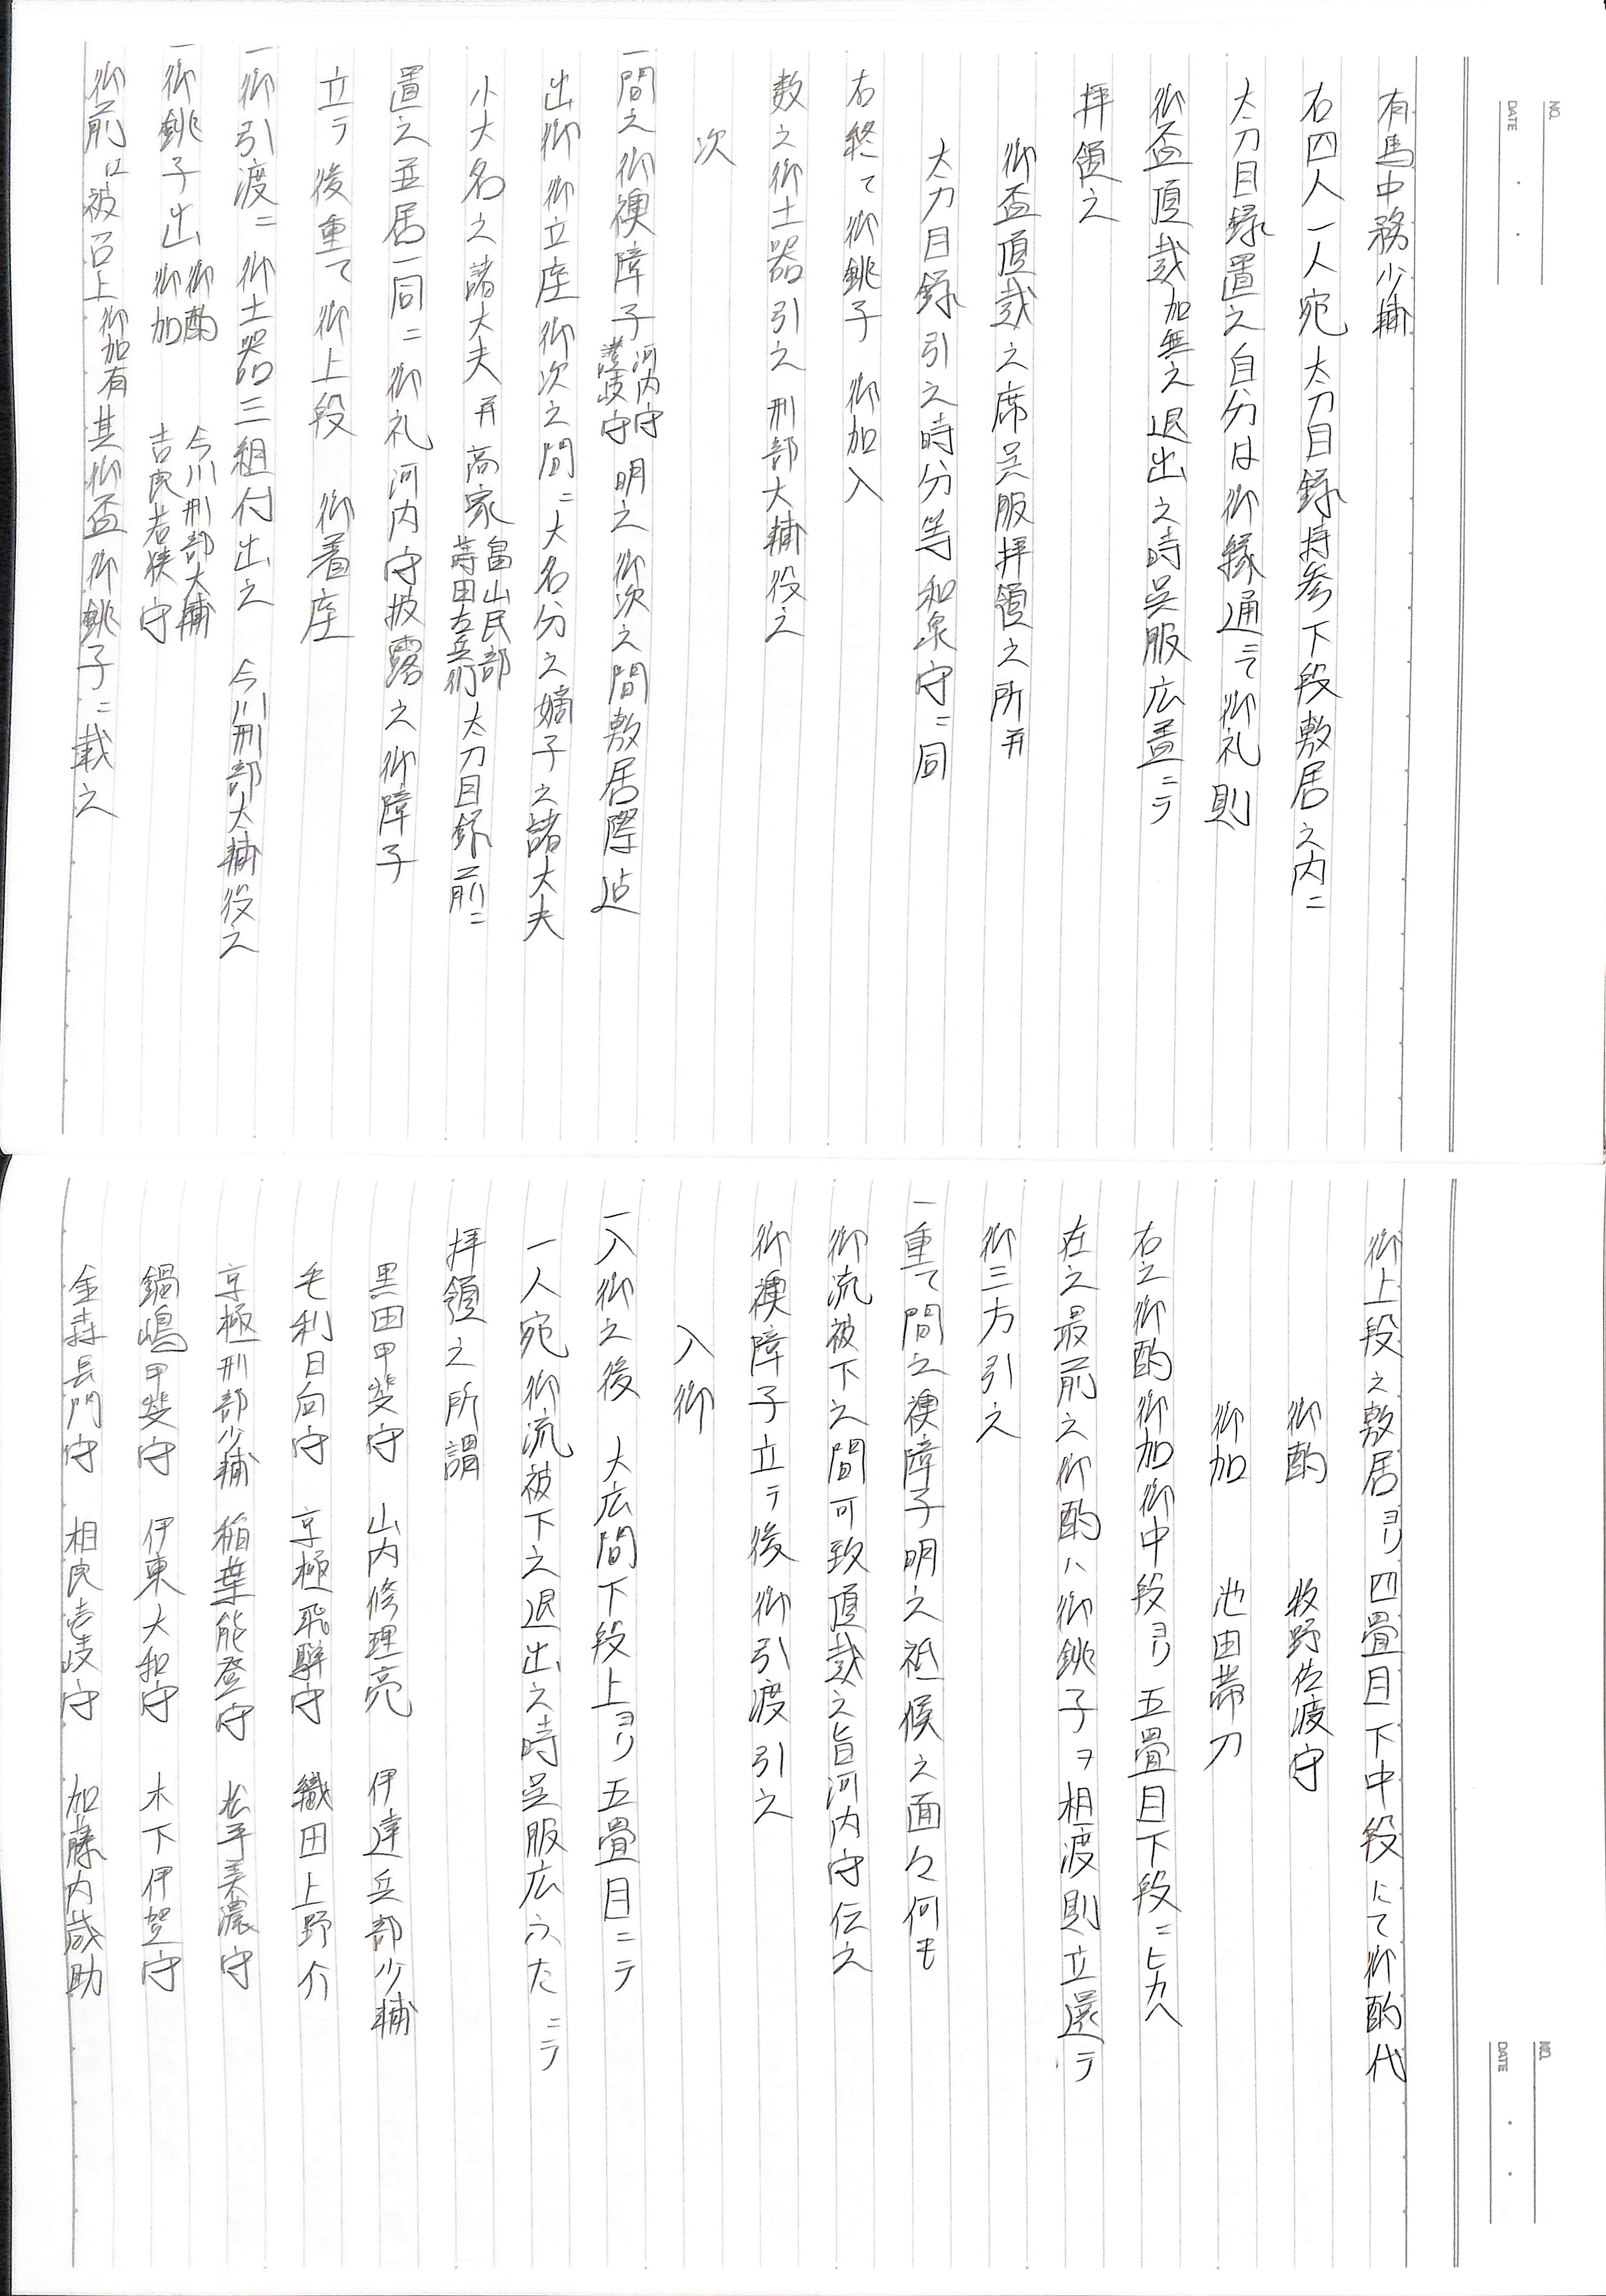 NO.
DATE
有馬中務少輔
右四人一人宛太刀目録持参下段敷居之内ニ
太刀目録置之自分は御縁通ニて御礼則
御盃頂戴加無之退出之時呉服広蓋ニテ
拝領之
御盃頂戴之席呉服拝領之所并
太刀目録引之時分等和泉守ニ同
右終て御銚子御加入
数之御土器引之刑部大輔役之
次
一間之御襖障子河内守讃岐守明之御次之間敷居際迠
出御御立座御次之間ニ大名分之嫡子之諸大夫
小大名之諸大夫并高家畠山民部蒔田左兵衛太刀目録前ニ
置之並居一同ニ御礼河内守披露之御障子
立テ後重て御上段 御着座
一御引渡ニ御土器三組付出之 今川刑部大輔役之
一御銚子出 御酌 今川刑部大輔
御加 吉良若狭守
御前江被召上御加有其御盃御銚子ニ載之
NO.
DATE
御上段之敷居ヨリ四畳目下中段にて御酌代
御酌 牧野佐渡守
御加 池田帯刀
右之御酌御加御中段ヨリ五畳目下段ニヒカヘ
在之最前之御酌ハ御銚子ヲ相渡則立還テ
御三方引之
一重て間之襖障子明之祗候之面々何も
御流被下之間可致頂戴之旨河内守伝之
御襖障子立テ後御引渡引之
入御
一入御之後 大広間下段上ヨリ五畳目ニテ
一人宛御流被下之退出之時呉服広ふたニテ
拝領之所謂
黒田甲斐守 山内修理亮 伊達兵部少輔
毛利日向守 京極飛騨守 織田上野介
京極刑部少輔 稲葉能登守 松平美濃守
鍋嶋甲斐守 伊東大和守 木下伊賀守
金森長門守 相良壱岐守 加藤内蔵助